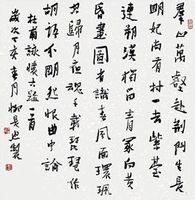 羣山萬壑赴荆門生長
明妃尚有村一去紫臺
連朔漠獨留青冢向黃
昏畫圖省識春風面環珮
空歸月夜魂千載琵琶作
胡語分明怨恨曲中論
杜甫詠懷古跡一首
歲次